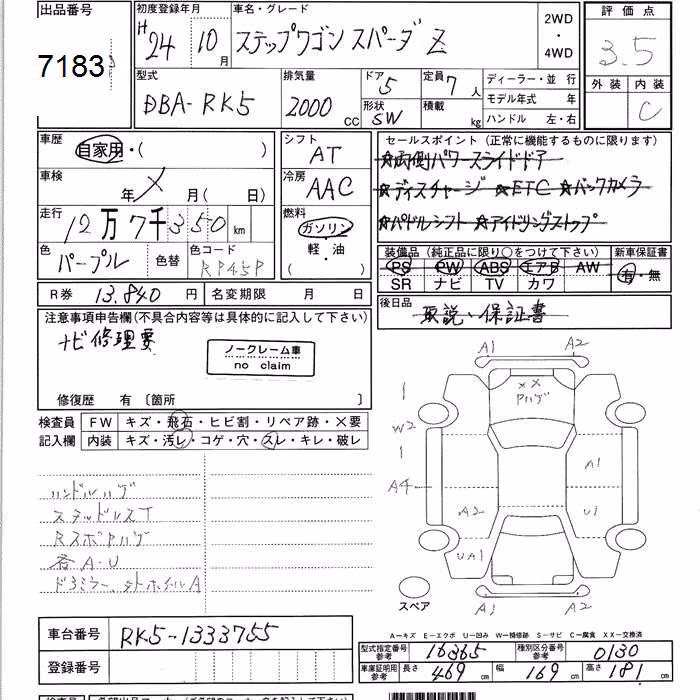 出品番号
7183
初度登録年月
H24 10月
車名・グレード
ステップワゴン スパーダ Z
2WD
・
4WD
評価点
3.5
外装 内装
C
型式
DBA-RK5
排気量
2000 CC
ドア
5
形状
SW
定員
7人
積載
kg
ディーラー・並行
モデル年式 年
ハンドル 左・右
車歴
自家用・( )
車検
年 月( 日)
走行
12万7千350km
色
パープル
色替
色コード
RP45P
シフト
AT
冷房
AAC
燃料
ガソリン
軽・油
( )
セールスポイント (正常に機能するものに限ります)
☆両側パワースライドドア
☆ディスチャージ ☆ETC ☆バックカメラ
☆パドルシフト ☆アイドリングストップ
装備品 (純正品に限り〇をつけて下さい)
PS PW ABS エアB AW
SR ナビ TV カワ
新車保証書
有・無
R券 13,840円
名変期限 月 日
後日品
取説・保証書
注意事項申告欄(不具合内容等は具体的に記入して下さい)
ナビ修理要
ノークレーム車
no claim
修復歴 有 〔箇所 〕
検査員
記入欄
FW キズ・飛石・ヒビ割・リペア跡・×要
内装 キズ・汚レ・コゲ・穴・スレ・キレ・破レ
ハンドルハゲ
スタッドレスT
RスポPハゲ
各A・U
A1 A2
××
Pハゲ
W2
1
1
A4
A1
A2
U1
UA1
A1 A2
スペア
A-キズ E-エクボ U-凹み W-補修跡 S-サビ C-腐食 XX-交換済
車台番号
RK5-1333755
登録番号
型式指定番号
参考
16365
種別区分番号
参考
0130
車庫証明用
参考
長さ
469 cm
幅
169 cm
高さ
181 cm